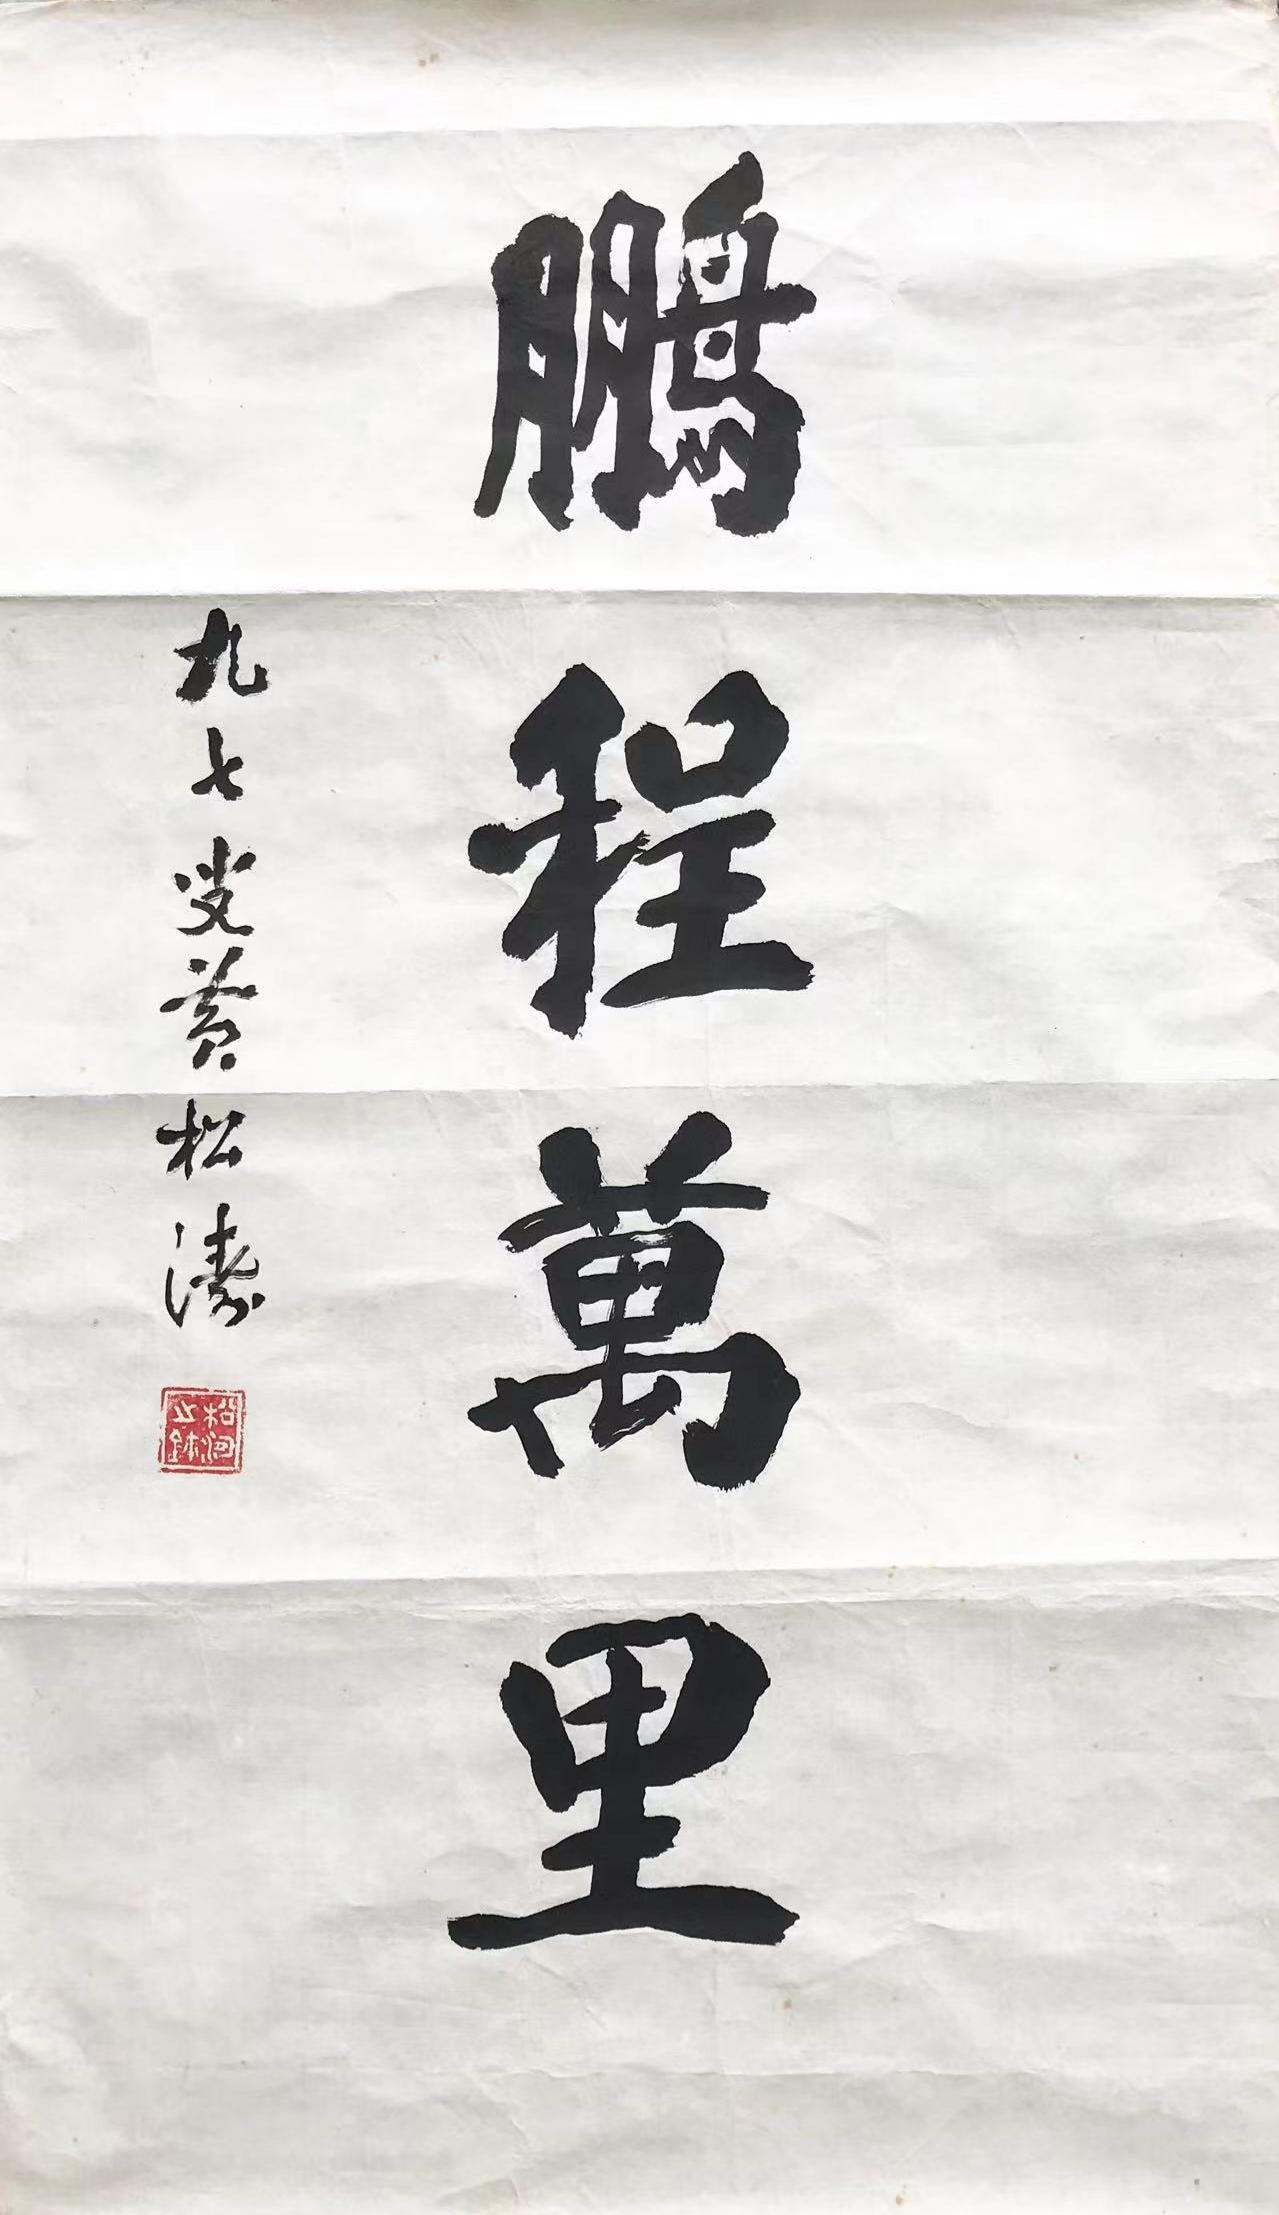 鵬程萬里
九七叟黄松濤